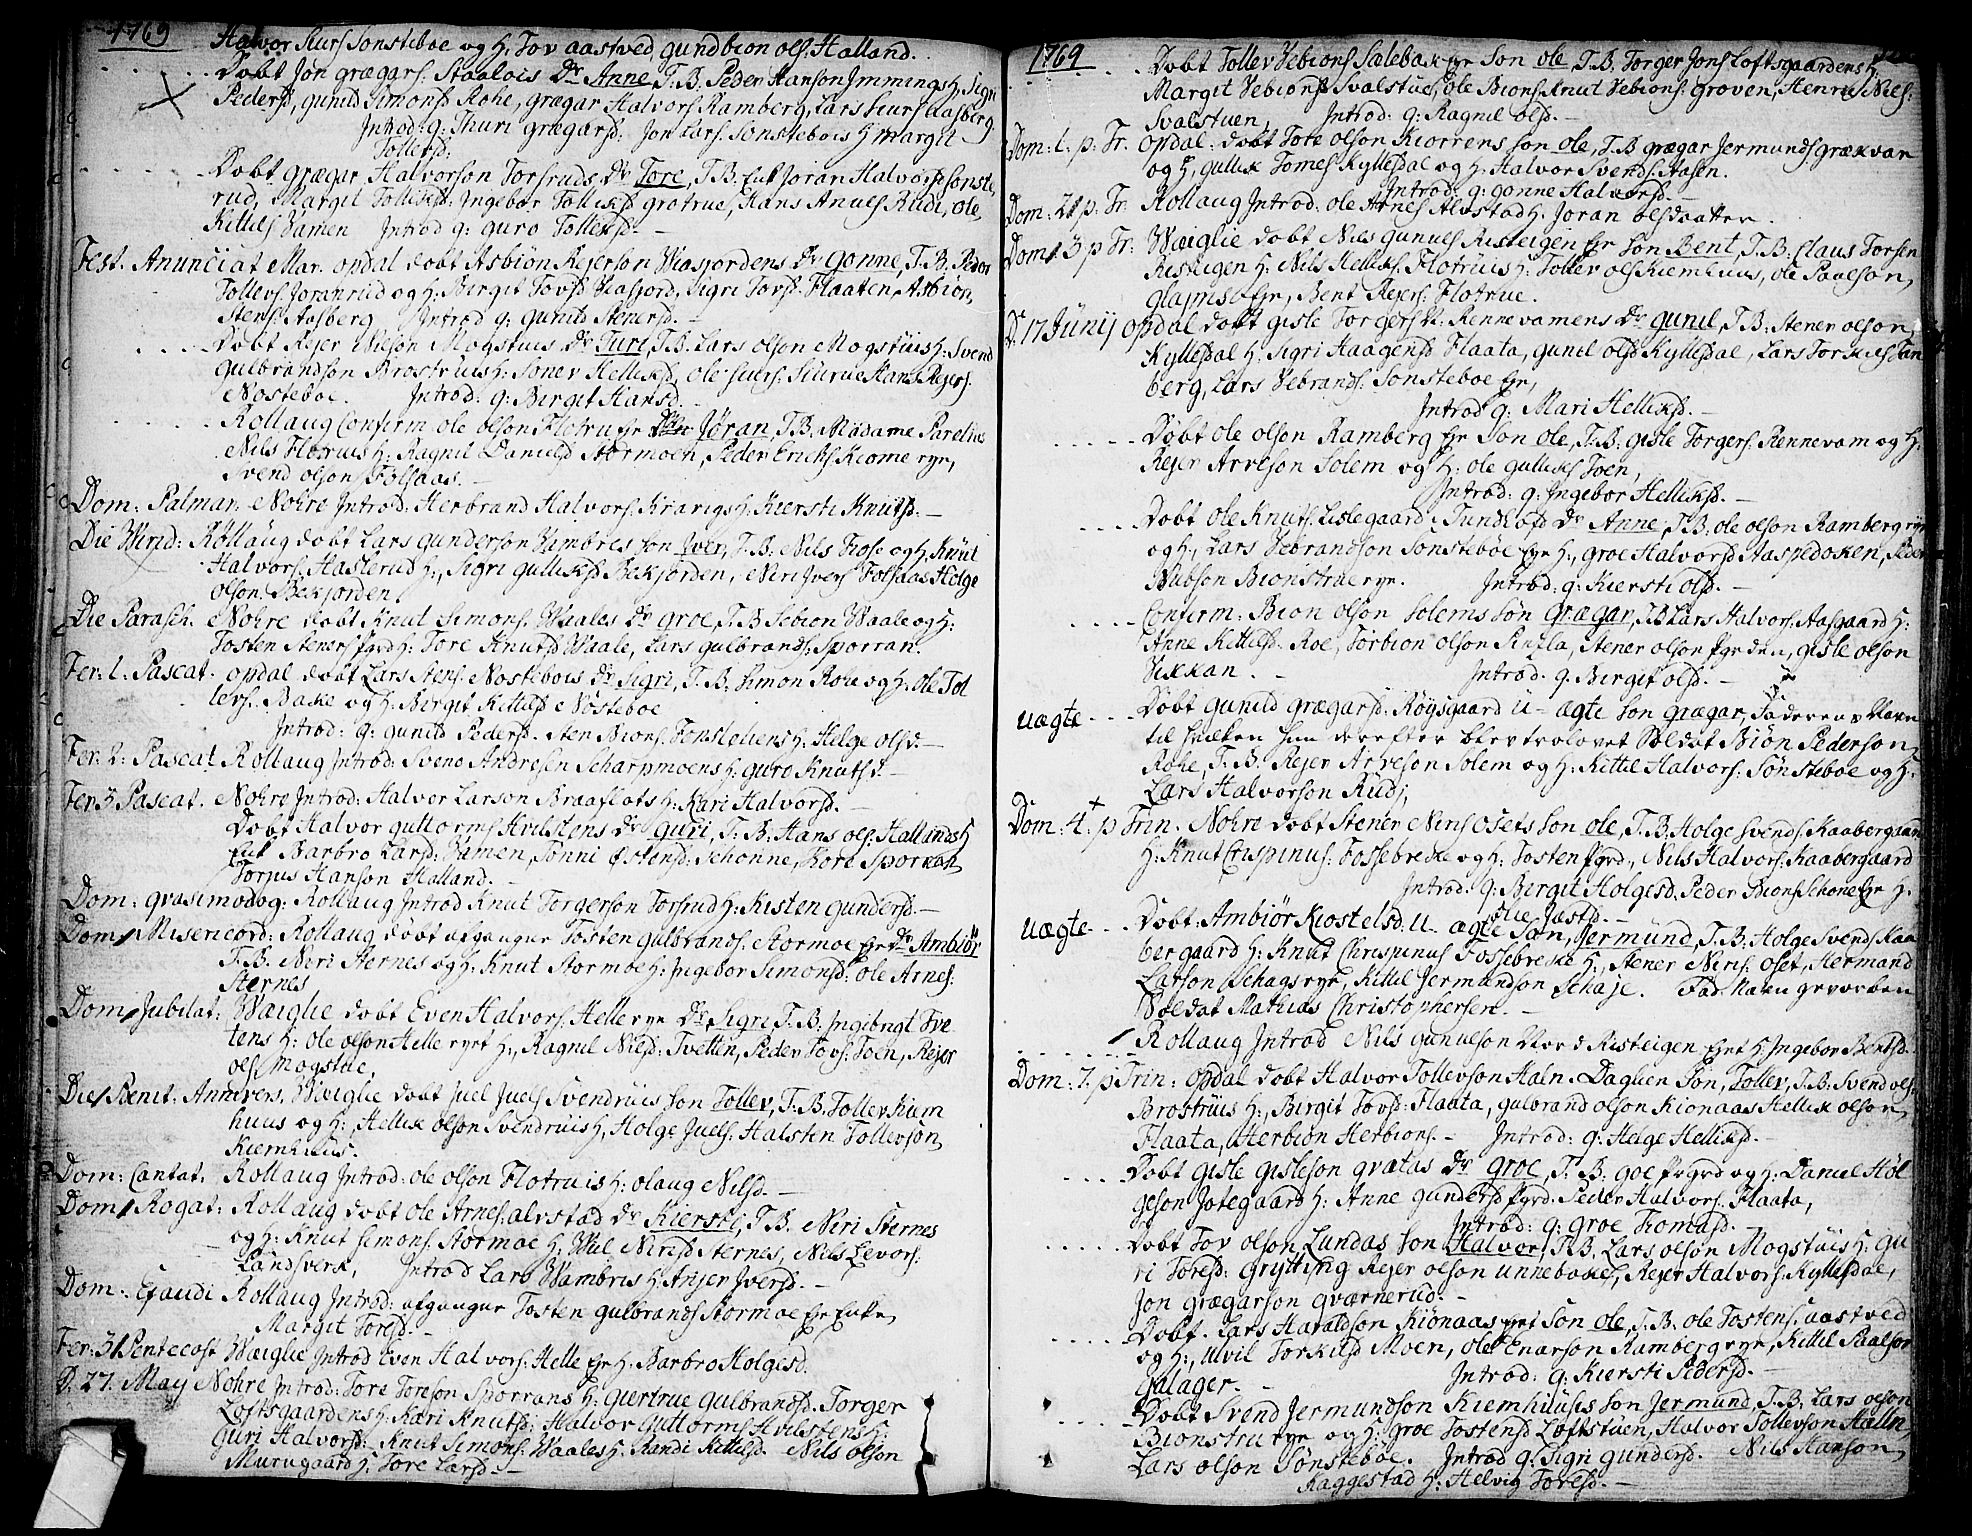 1769
Halvor Siurs Sønsteboe og H. Tov aastved, gundbion ols. Halland.
Døbt Jon grægars: Staalois Dr Anne, T.B. Peder Hanson Immings H, Sigri
Pedersd, gunild Simonsd Rohe, grægar Halvors Ramberg, Lars Siurs Aasberg.
Introd: q: Thuri grægarsd. Jon Lars. Sønstebois H Margit
Tollefsd:
Døbt grægar Halvorson Torsruds Dr Tore, T.B. Enk Joran Halvorsd Sonste
rud, Margit Tolliksd. Ingebor Tolliksd grotrue, Hans Anues Rudi, ole
Kittels Vamen Introd q: guro Tollefsd. –
Fest. Anunciat Mar. opdal døbt Asbiön Rejerson Wiasjordens Dr gonne, T.B. Peder
Tollefs. Joranrud og H. Birgit Tovsd Viasjord, Sigri Tovsd. Flaaten, Asbion
Stens. Aasberg Introd q: gunild Stenersd. –
Døbt Rejer Nilson Mogstuis Dr Turi, T.B. Lars olson Mogstuis H: Svend
gulbrandson Brostruis H: Soner Helliksd, ole Siurs. Siurrue Hans Rejers.
Nosteboe. Introd: q: Birgit Hansd.
Rollaug Confirm ole olson Flotru ejr Dtr Jöran, T.B. Madame Parelius
Nils Flotruis H: Ragnil Danielsd Stormoen, Peder Ericks Kiome ryr,
Svend olson Folsaas. –
Dom: Palmar. Nohre Introd: Herbrand Halvors. Kravigs H: Kiersti Knutsd. –
Die Virid: Rollaug døbt Lars gunderson Vambres Son Iver, T.B. Nils Fose og H, Knut
Halvors. Hasterud H:, Sigri gulliksd Bekjorden, Neri Ivers Folsaas Helge
olson Bekjorden.
Die Parasch. Nohre døbt Knut Simons. Waales Dr groe, T.B. Sebion Waale og H:
Tosten Steners Pgrd H: Tore Knutsd Waale, Lars gulbrands: Sporran.
Fer: 1. Pascat. opdal døbt Lars Stens. Nostebois Dr Sigri, T.B. Simon Rohe og H: ole Tol
lefs. Bake og H: Birgit Kittelsd Nøsteboe
Introd: q: gunild Pedersd. Sten Bions. Tonslehens H: Helge olsd. –
Fer: 2: Pascat Rollaug Introd: Svend Andresen Scharpmoens H: guro Knutsd. –
Fer: 3 Pascat. Nohre Introd: Halvor Larson Braaflots H: Kari Halvorsd. –
Døbt Halvor guttorms Hvilstens Dr guri, T.B: Hans ols: Hallands H
Enk Barbro Larsd: Vamen, Tonni Østensd: Schonne, Tore Sporran
Torjus Hanson Halland. –
Dom: qvasimodog: Rollaug Introd Knut Torgerson Torsrud H: Kisten gundersd. –
Dom: Misericord: Rollaug døbt afgangne Tosten gulbrands: Stormoe Ejr Dr Ambiör
T.B. Neri Sternes og H: Knut Stormoe H: Ingebor Simonsd: ole Arnes:
Sternes
Dom: Jubilat: Wæglie døbt Even Halvors. Helle ryr Dr Sigri T.B. Ingibrigt Tve-
tens H: ole olson Helle ryrt H:, Ragnil Nilsd: Tvetten, Peder Tovs: Toen, Rejer
ols Mogstue.
Die Pænit. Annivers. Wæglie døbt Juel Juels Svendruis Son Tollev, T.B. Tollev Kiem
huus og H:, Hellik olson Svendruis H, Holge Juels: Halsten Tollevson
Kiemhuus.
Dom: Cantat. Rollaug Introd: ole olson Flotruis H: olaug Nilsd. –
Dom: Rogat: Rollaug døbt ole Arnes: alvstad Dr Kiersti, T.B. Neri Sternes
og H: Knut Simons: Stormoe H, Wul Nerisd Sternes, Nils Levors:
Landsverk, Introd Lars Wambres H: Anjer Iversd. –
Dom: Exaudi Rollaug Introd: afgangne Tosten gulbrands Stormoe Ejr Enke
Margit Toresd. –
Fer: 3 Pentecost Wæglie Introd Even Halvors: Helle Ejr H: Barbro Holgesd.
D. 27. May Nohre Introd: Tore Toreson Sporrans H: Giertrue Gulbrandsd. Torger
Loftsgaardens H: Kari Knutsd: Halvor Guttorms Hvilstens H:
Guri Halvorsd: Knut Simons: Waales H: Randi Kittelsd. Nils olson
Murugaard H: Tore Larsd. –
1769
Døbt Tollev Vebions Sælebak ejr Son ole, T.B. Torger Jons Loftsgaardens H,
Margit Vebionsd Svalstue, ole Bions: Knut Vebions: groven, Henrik Nils:
Svalstuen, Introd: q: Ragnil olsd. –
Dom: 1. p. Tr. Opdal: døbt Tore olson Kiorrens Son ole, T.B grægar Jermunds grækvan
og H, gullik Tomes Kyllesdal og H: Halvor Svends. Aasen.
Introd: q: gonne Halvorsd. –
Dom: 2 p. Tr. Rollaug Introd: ole Arnes Alvstad H: Joran olsdaatter.
Dom: 3 p Tr: Wæglie døbt Nils gunuls Risteigen Ejr Son Bent, T.B. Claus Torsen
Risteigen H: Nils Helliks. Flotruis H: Tollev ols Kiemhuus, ole Paalson,
glaims Ejr, Bent Rejers: Flotrue.
D. 17 Junij opdal døbt gisle Torgers: N: Rennevamens Dr gunil, T.B: Stener olson
Kyllesdal H: Sigri Haagensd Flaata, gunil olsd Kyllesdal, Lars Torkils Tan
berg, Lars Vebrands. Sonsteboe Ejr,
Introd q: Mari Helliksd. –
Døbt ole olson Ramberg Ejr Son ole, T.B: gisle Torgers: Rennevam og H:
Rejer Arveson Solem og H: ole gulliks Toen,
Introd: q: Ingebor Helliksd. –
Døbt ole Knuts: Lislegaard i Tundhofd Dr Anne, T.B: ole olson Ramberg ryr
og H:, Lars Vebrandson Sonsteboe Ejr H:, groe Halvorsd Aaspedoken, Peder
Nubson Bionstrue ryr. Introd: q: Kiersti olsd. –
Confirm: Bion olson Solems Son grægar, T.B Lars Halvors. Aasgaard H:
Anne Kittelsd. Roe, Torbion olson Pinsla, Stener olson Pgrden, gisle olson
Vikkan. – Introd. q. Birgit olsd. –
uægte Døbt gunild grægarsd. Röysgaard U-ægte Son grægar, Faderens Navn
til hvilken hun derefter blev trolovet Soldat Biön Pederson
Rohe, T.B. Rejer Arveson Solem og H: Kittil Halvors: Sønsteboe og H:
Lars Halvorson Rudj,
Dom: 4. p Trin. Nohre døbt Stener Neris Osets Son ole, T.B. Holge Svends. Kaabergaard
H: Knut Crispinus: Fossebrecke og H: Tosten Pgrd., Nils Halvors: Kaabergaard
Introd: q: Birgit Holgesd. Peder Bions Schone Ejr H:
Olie Jastd. –
uægte Døbt: Ambiör Kiostelsd. U-ægte Søn, Jermund, T.B. Holge Svends Kaa
bergaard H: Knut Chrispinus Fossebrecke H:, Stener Neris: oset, Hermand
Larson Schags ryr, Kittil Jermundson Schaje. Fad: Navn gevorben
Soldat Mathias Christophersen. –
Rollaug Introd Nils gunulson Nord Risteigen Ejrt H Ingebor Bentsd.
Dom: 7. p Trin: Opdal døbt Halvor Tollevson Haln-Daglien Søn, Tollev, T.B. Svend ols.
Brostruis H:, Birgit Tovsd: Flaata, gulbrand olson Kionaas Hellik olson
Flaata, Herbion Herbions. – Introd: q: Helge Helliksd. –
Døbt gisle gisleson qvatas Dr groe, T.B. goe Prgrd og H: Daniel Høl
geson Jotegaard H: Anne gundersd Pgrd: Peder Halvors. Flaata,
Introd: q: groe Tomasd. –
Døbt Tov olson Lundas Son Halvor, T.B. Lars olson Mogstuis H: gu
ri Toresd: Grytting Rejer olson Unnebakel, Rejer Halvors: Kyllesdal,
Jon grægarson gværnerud. –
Døbt. Lars Haraldson Kiönaas Ejrt Son ole, T.B. ole Tostens: aastved
og H:, Ulvil Torkilsd Moen, ole Enarson Ramberg ryr, Kittil Paalson
galager. – Introd: q: Kiersti Pedersd. –
Døbt Svend Jermundson Kiemhuusis Son Jermund, T.B. Lars olson
Bionstru ryr og H: groe Tostensd Loftstuen, Halvor Tollevson Halln
Lars olson Sønsteboe. Introd q: Sigri gundersd. Nils Hanson
Raggestad H: Helvig Toresd. –